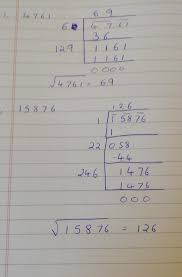 1. 4761
69
6 4761
36
129 1161
1161
0000
√4761 = 69
15876
126
1 15876
1
22 058
-44
246 1476
1476
000
√15876 = 126